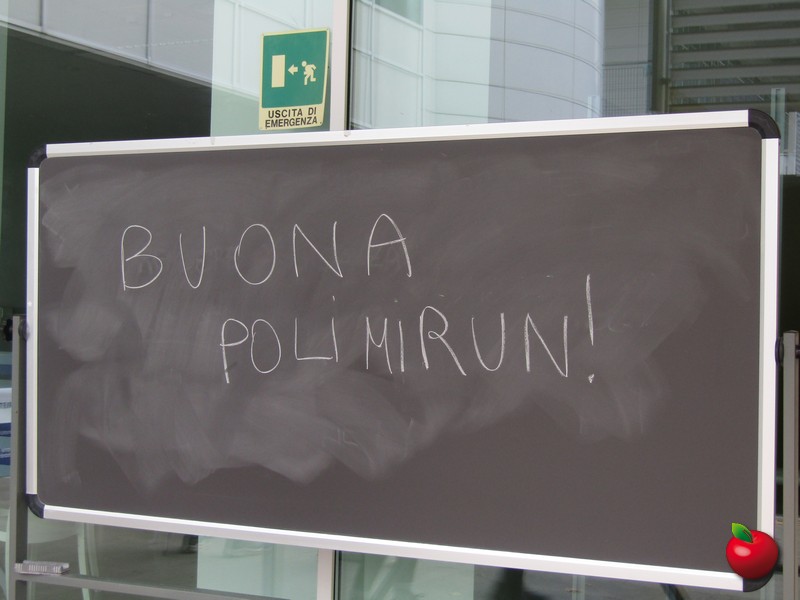 USCITA DI
EMERGENZA
BUONA
POLiMIRUN!